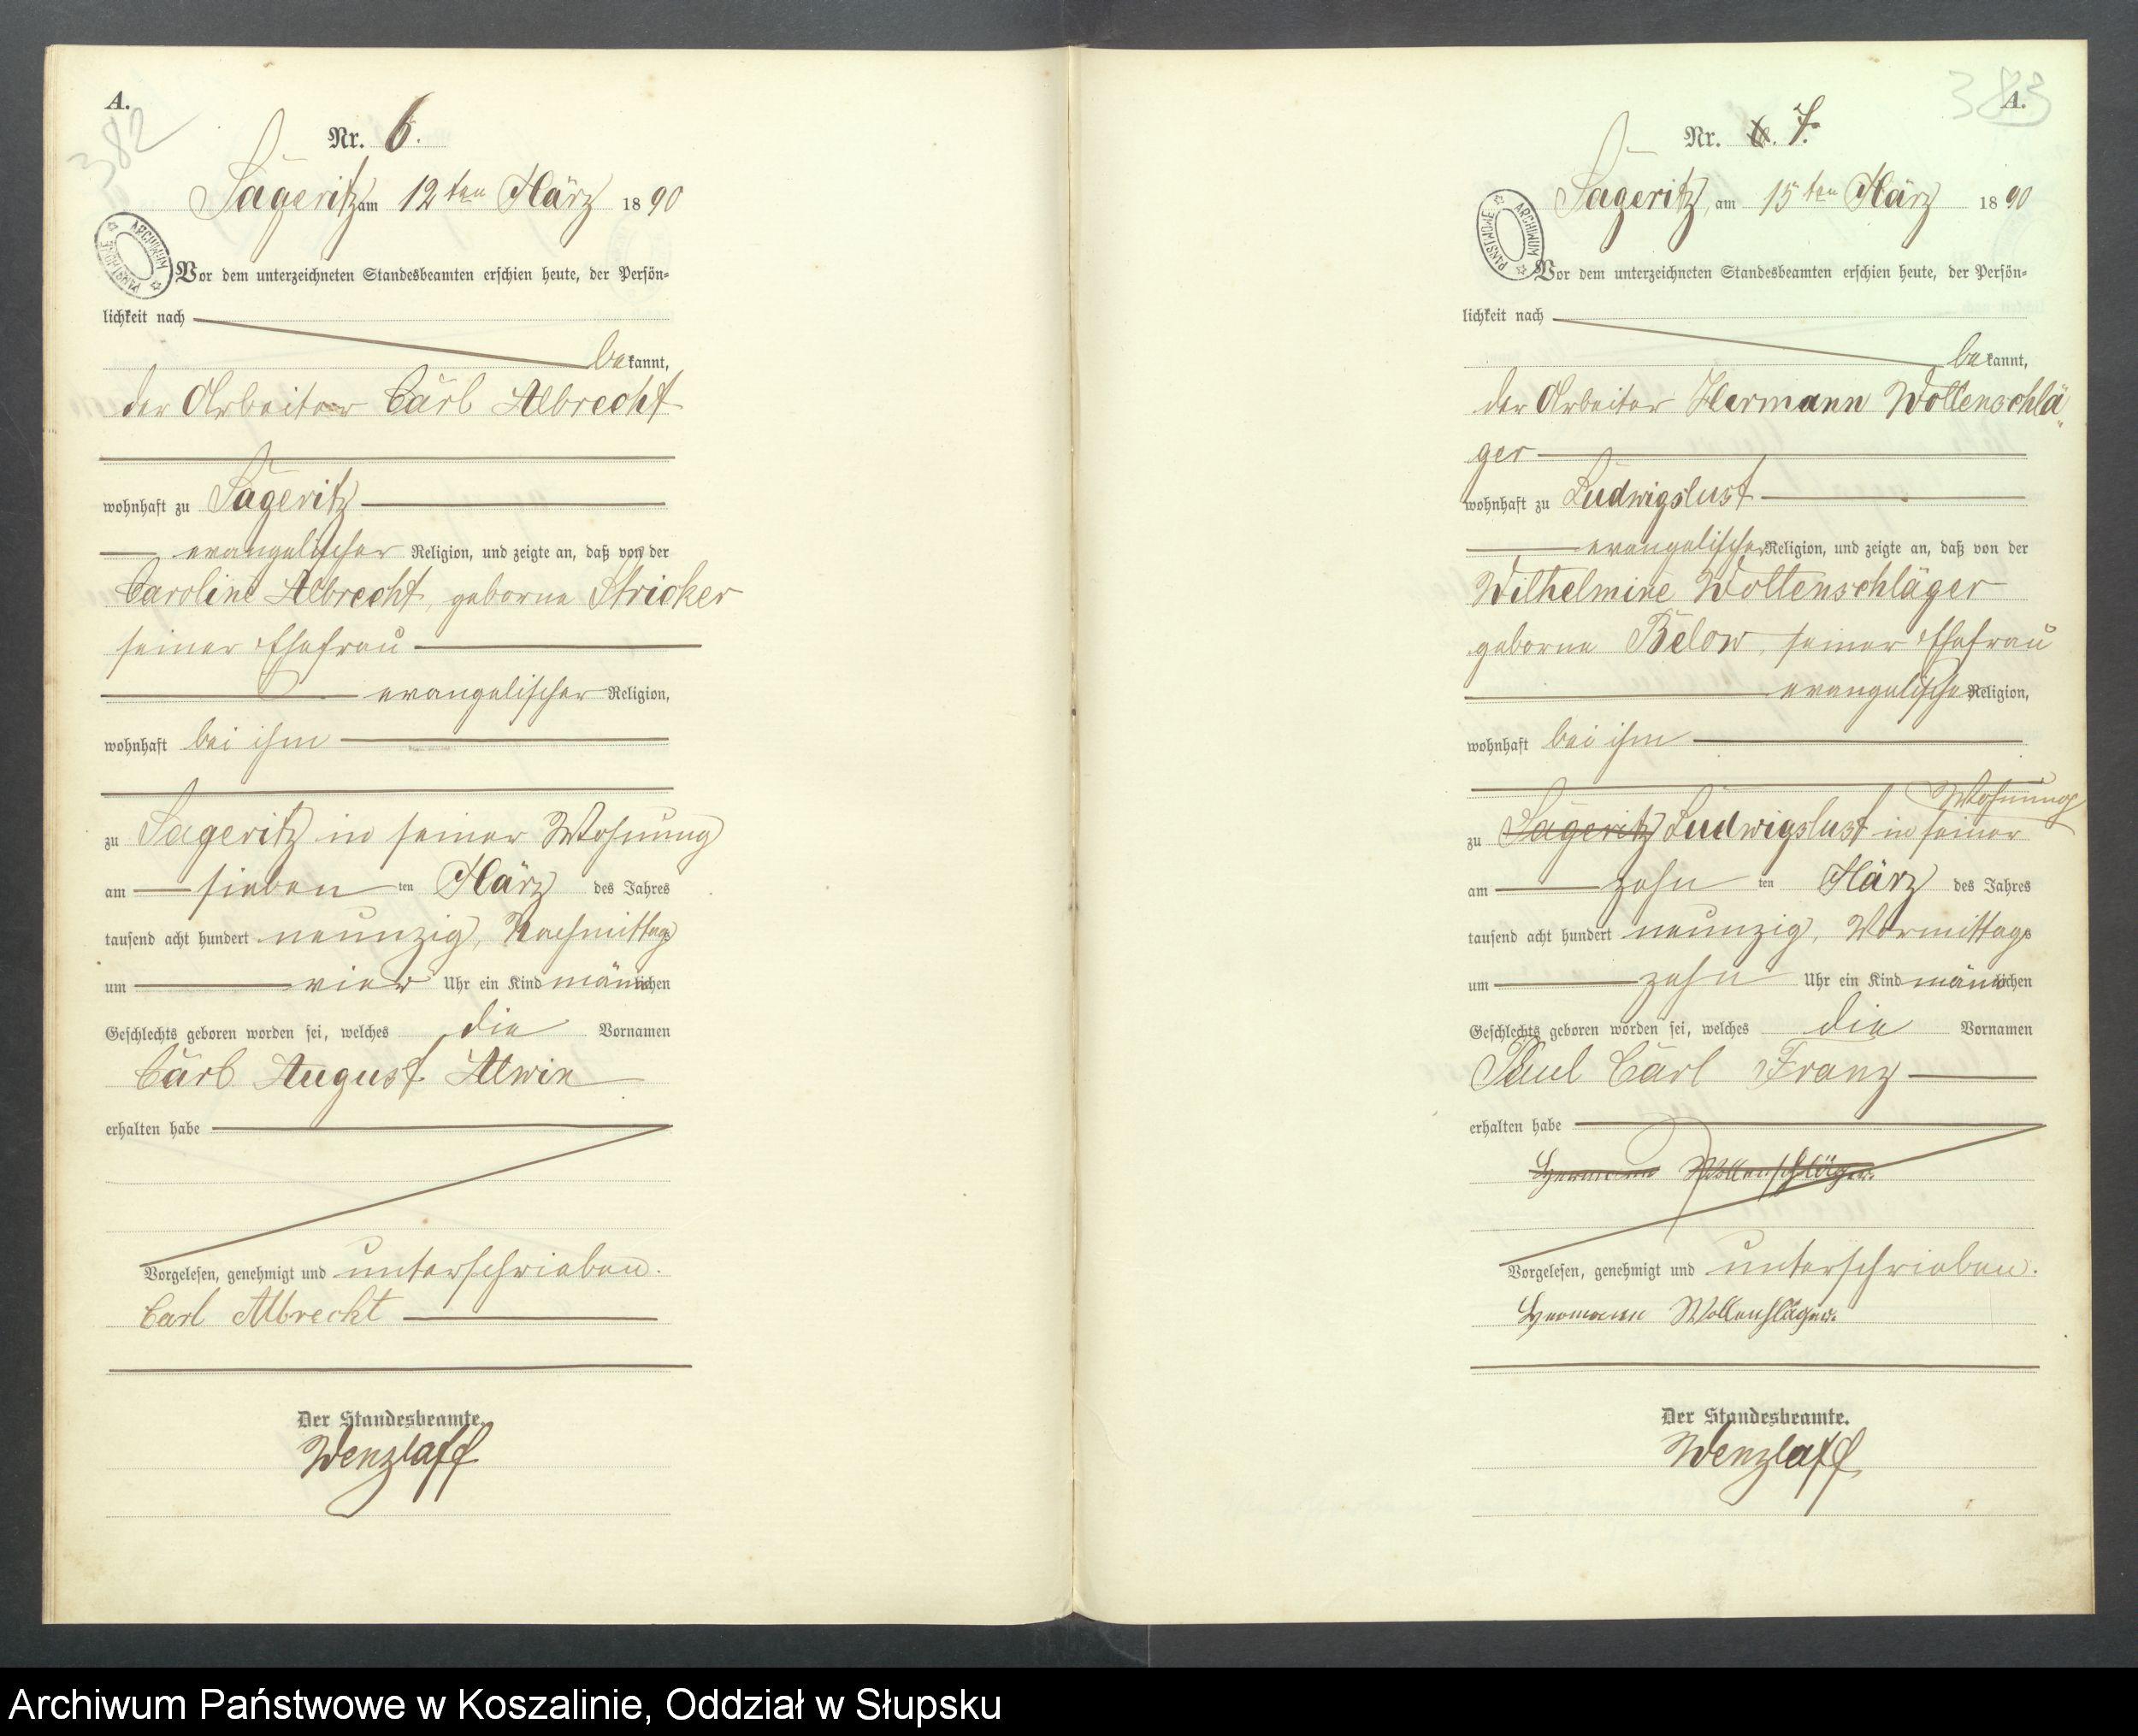 A.
382
Nr. 6.
Sageritz am 12ten März 1890
ARCHIWUM PAŃSTWOWE
Vor dem unterzeichneten Standesbeamten erschien heute, der Persön-
lichkeit nach
bekannt,
der Arbeiter Carl Albrecht
wohnhaft zu Sageritz
evangelischer Religion, und zeigte an, daß von der
Caroline Albrecht, geborne Stricker
seiner Ehefrau
evangelischer Religion,
wohnhaft bei ihm
zu Sageritz in seiner Wohnung
am sieben ten März des Jahres
tausend acht hundert neunzig, Nachmittag
um vier Uhr ein Kind männlichen
Geschlechts geboren worden sei, welches die Vornamen
Carl August Alwin
erhalten habe
Vorgelesen, genehmigt und unterschrieben.
Carl Albrecht
Der Standesbeamte.
Wenzlaff
383
A.
Nr. 6. 7.
Sageritz, am 15ten März 1890
ARCHIWUM PAŃSTWOWE
Vor dem unterzeichneten Standesbeamten erschien heute, der Persön-
lichkeit nach
bekannt,
der Arbeiter Hermann Wollenschlä„
ger
wohnhaft zu Ludwigslust
evangelischer Religion, und zeigte an, daß von der
Wilhelmine Wollenschläger
geborne Below, seiner Ehefrau
evangelischer Religion,
wohnhaft bei ihm
Wohnung
zu Sageritz Ludwigslust in seiner
am zehn ten März des Jahres
tausend acht hundert neunzig, Vormittags
um zehn Uhr ein Kind männlichen
Geschlechts geboren worden sei, welches die Vornamen
Paul Carl Franz
erhalten habe
Hermann Wollenschläger.
Vorgelesen, genehmigt und unterschrieben.
Hermann Wollenschläger.
Der Standesbeamte.
Wenzlaff
Archiwum Państwowe w Koszalinie, Oddział w Słupsku